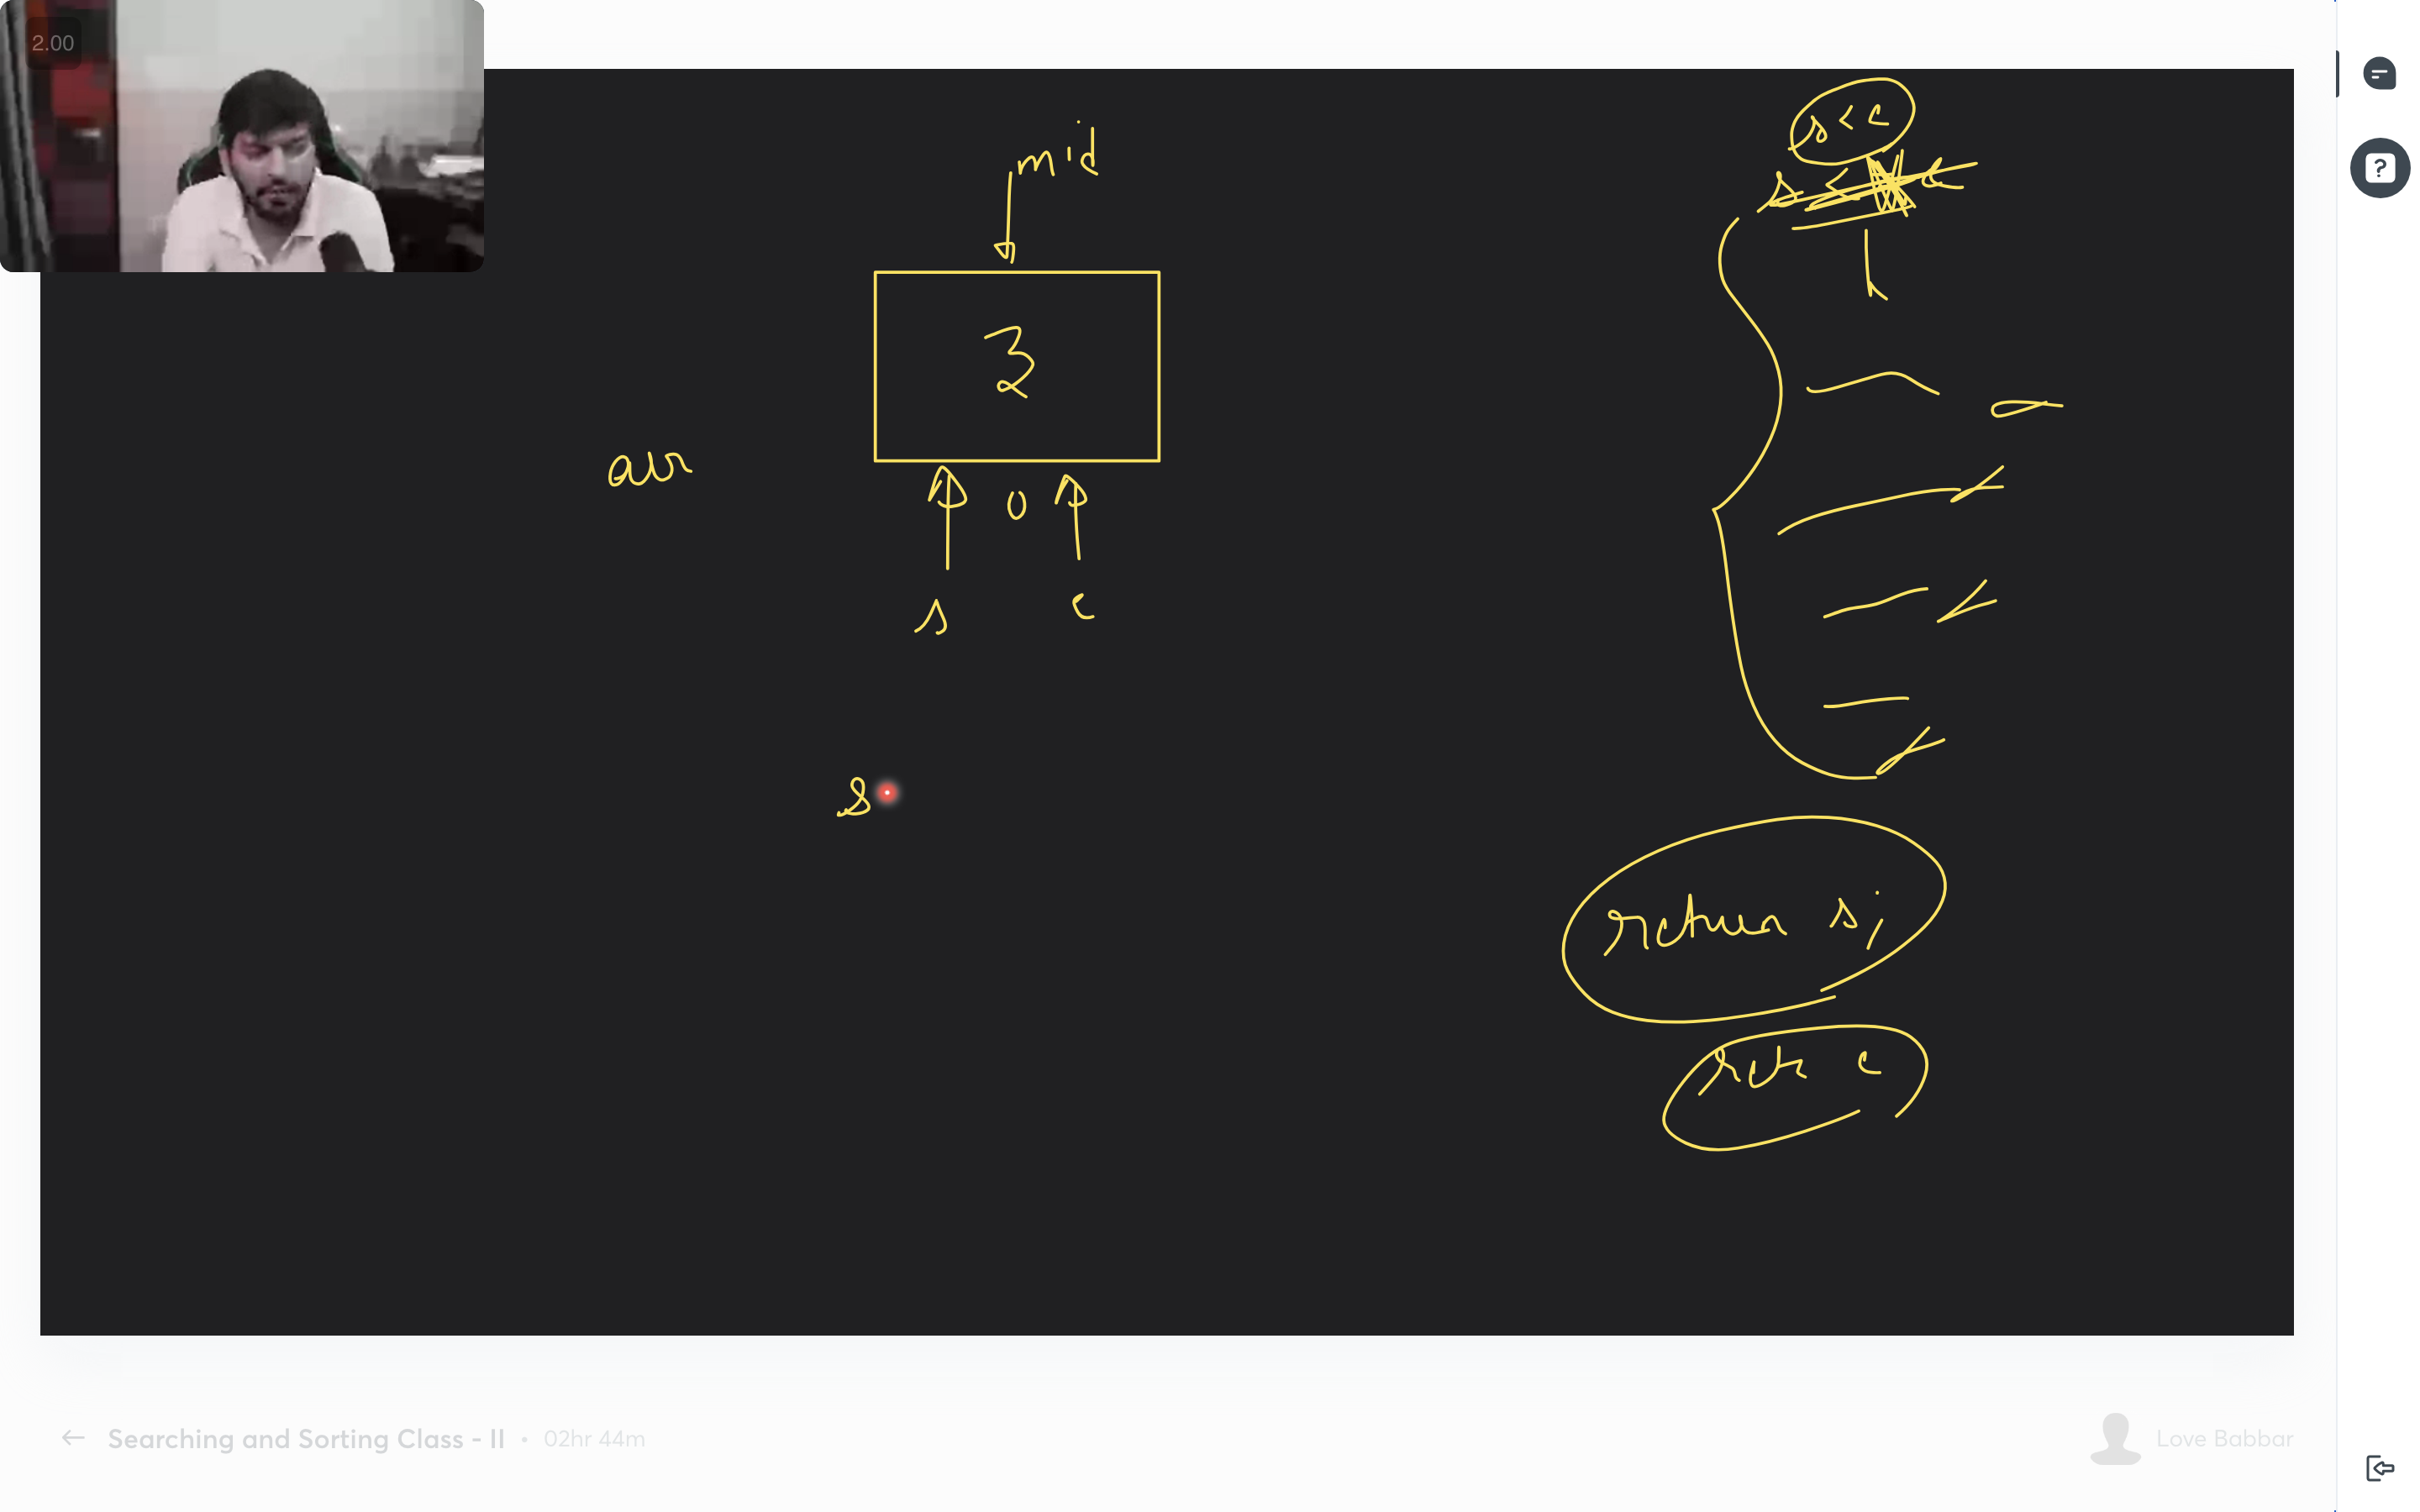 2.00
mid
s < e
s < e
3
arr
0
s
e
s
return s;
ret e
Searching and Sorting Class - II • 02hr 44m
Love Babbar
?